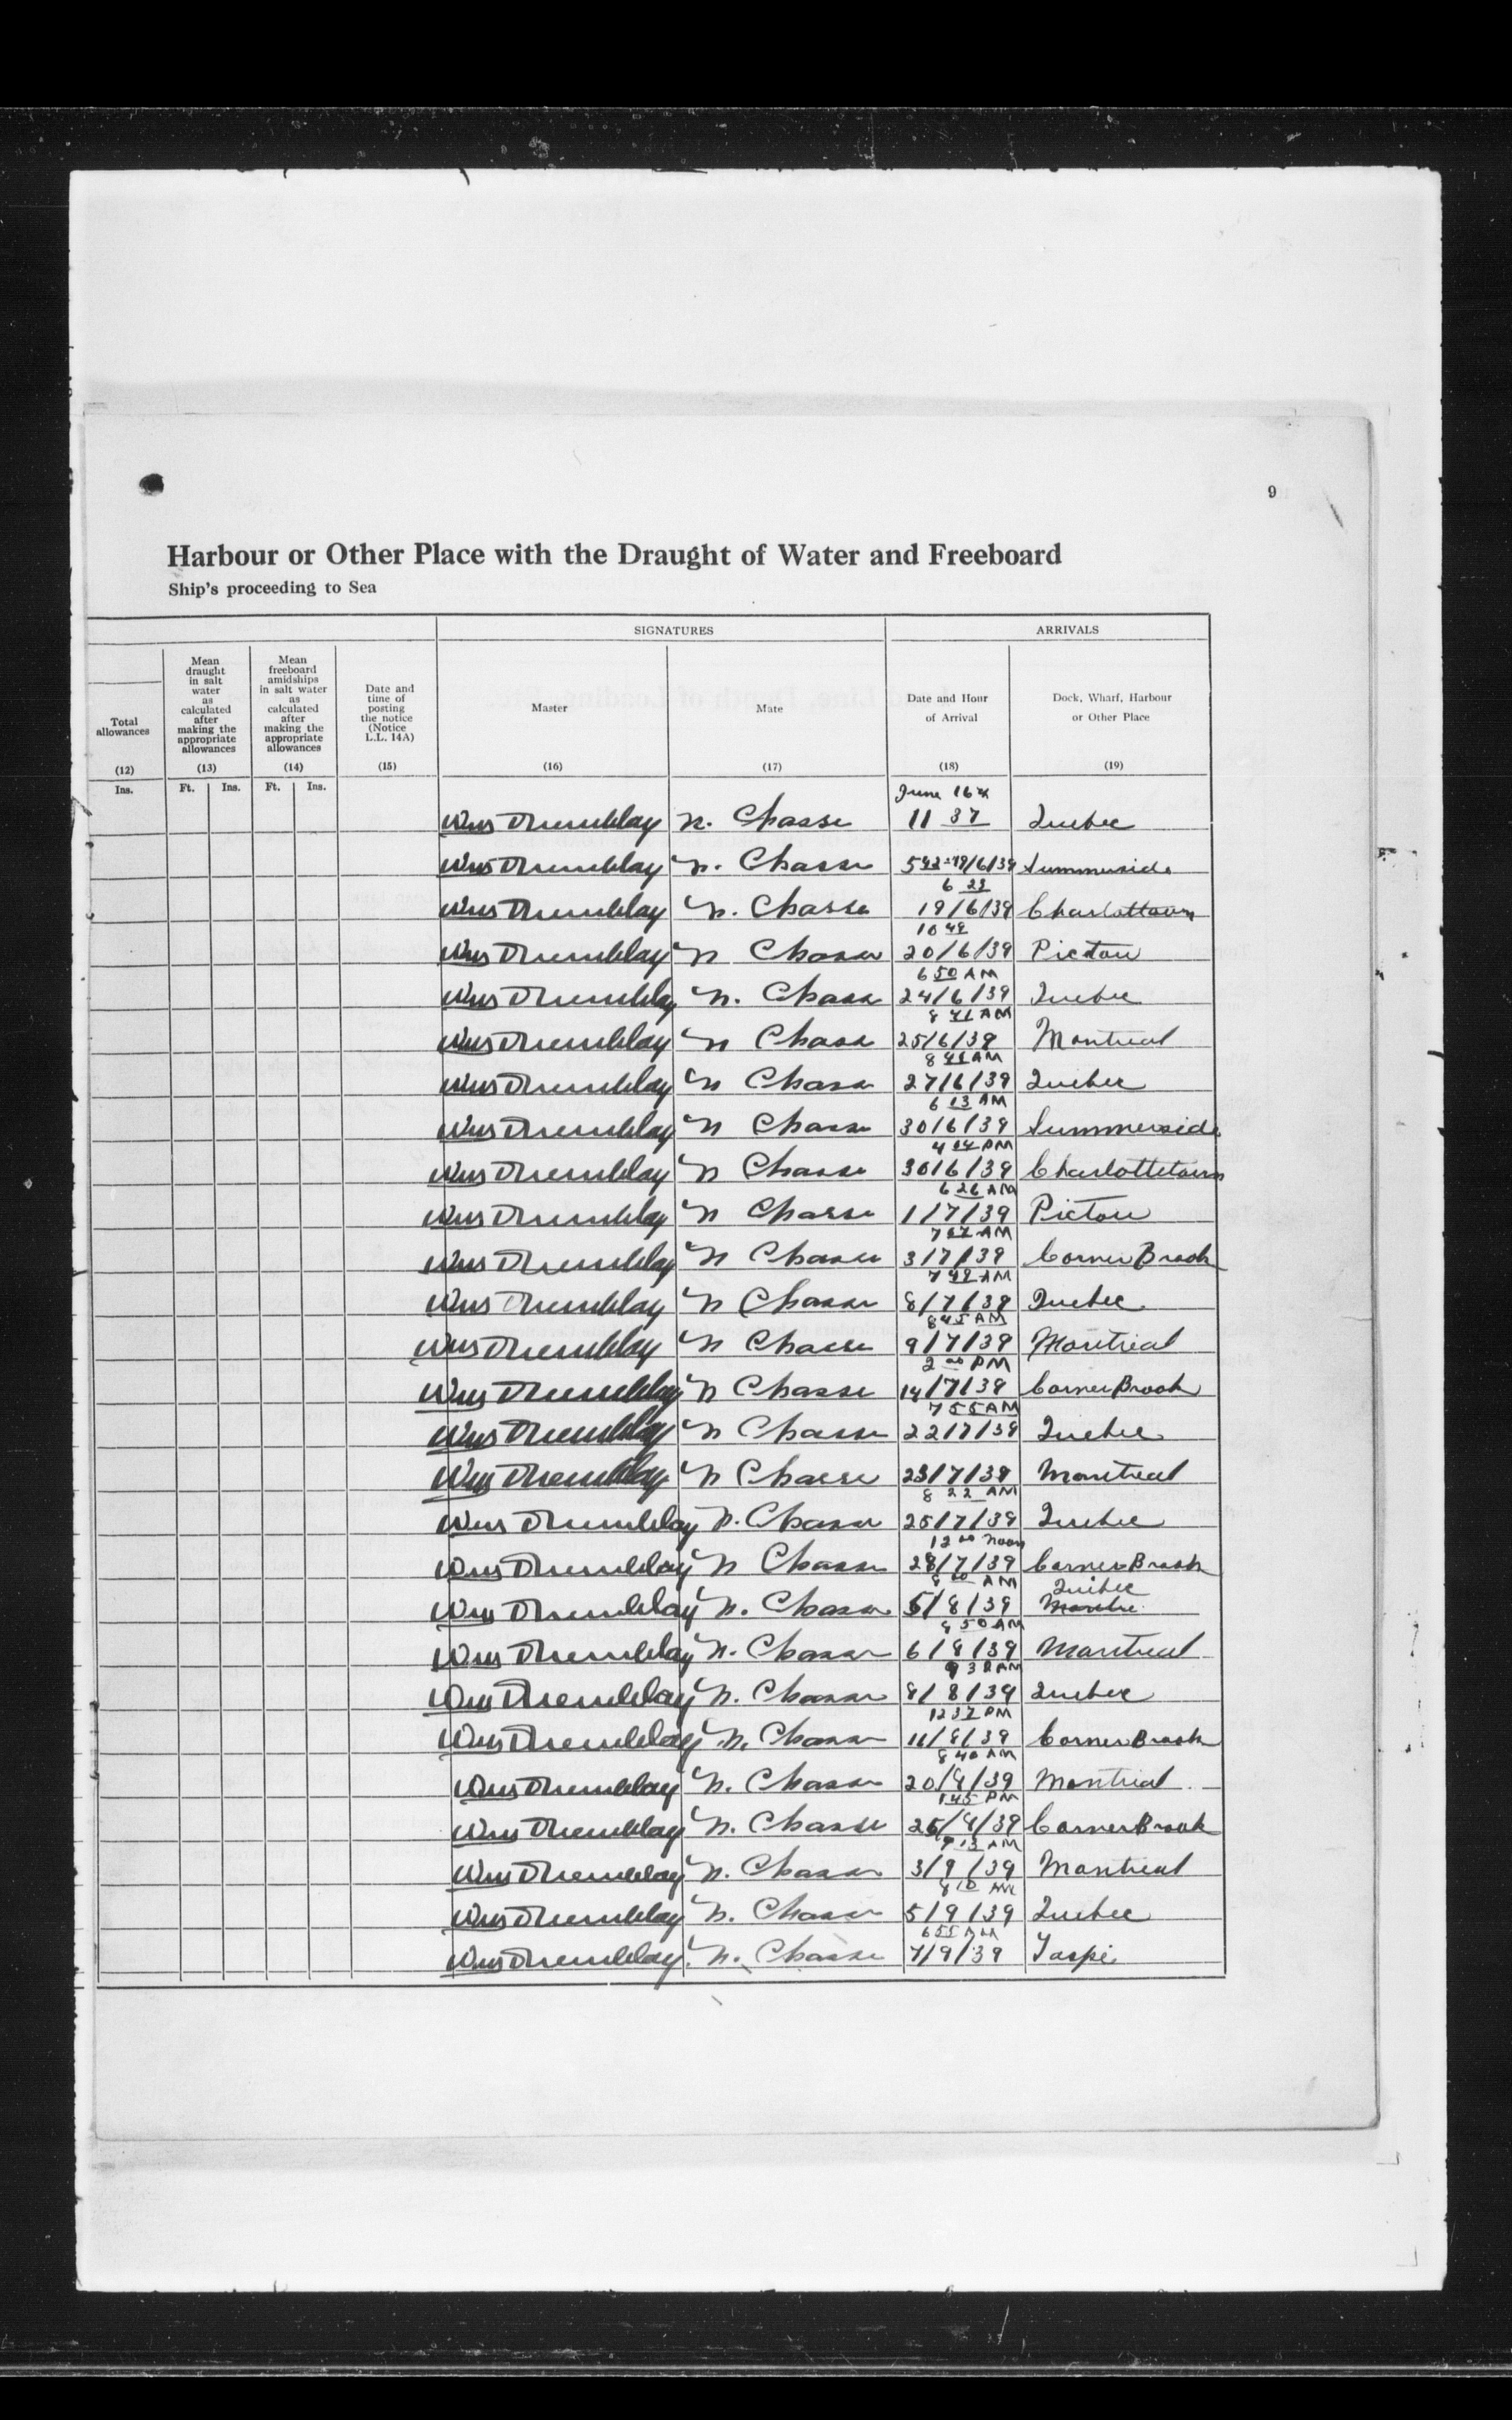 9
Harbour or Other Place with the Draught of Water and Freeboard
Ship's proceeding to Sea
SIGNATURES ARRIVALS
Total allowances
Mean draught in salt water as calculated after making the appropriate allowances
Mean freeboard amidships in salt water as calculated after making the appropriate allowances
Date and time of posting the notice (Notice L.L. 14A)
Master
Mate
Date and Hour of Arrival
Dock, Wharf, Harbour or Other Place
(12) (13) (14) (15) (16) (17) (18) (19)
Ins. Ft. Ins. Ft. Ins.
June 16th
Wm Tremblay N. Chasse 11 37 Quebec
Wm Tremblay N. Chasse 19/6/39 Summerside
6 23
Wm Tremblay N. Chasse 19/6/39 Charlottown
10 49
Wm Tremblay N Chasse 20/6/39 Pictou
6 50 AM
Wm Tremblay N. Chasse 24/6/39 Quebec
8 41 AM
Wm Tremblay N Chasse 25/6/39 Montreal
8 41 AM
Wm Tremblay N Chasse 27/6/39 Quebec
6 13 AM
Wm Tremblay N Chasse 30/6/39 Summerside
4 14 PM
Wm Tremblay N Chasse 30/6/39 Charlottetown
6 26 AM
Wm Tremblay N Chasse 1/7/39 Pictou
AM
Wm Tremblay N Chasse 3/7/39 Corner Brook
7 49 AM
Wm Tremblay N Chasse 8/7/39 Quebec
8 45 AM
Wm Tremblay N Chasse 9/7/39 Montreal
2 00 PM
Wm Tremblay N Chasse 14/7/39 Corner Brook
7 55 AM
Wm Tremblay N Chasse 22/7/39 Quebec
Wm Tremblay N Chasse 23/7/39 Montreal
8 22 AM
Wm Tremblay N. Chasse 25/7/39 Quebec
12 00 Noon
Wm Tremblay N Chasse 28/7/39 Corner Brook
AM Quebec
Wm Tremblay N. Chasse 5/8/39
8 50 AM
Wm Tremblay N. Chasse 6/8/39 Montreal
9 38 AM
Wm Tremblay N. Chasse 8/8/39 Quebec
12 37 PM
Wm Tremblay N. Chasse 11/8/39 Corner Brook
8 40 AM
Wm Tremblay N. Chasse 20/8/39 Montreal
1 45 PM
Wm Tremblay N. Chasse 25/8/39 Corner Brook
9 13 AM
Wm Tremblay N. Chasse 3/9/39 Montreal
8 10 AM
Wm Tremblay N. Chasse 5/9/39 Quebec
6 55 AM
Wm Tremblay N. Chasse 7/9/39 Gaspé